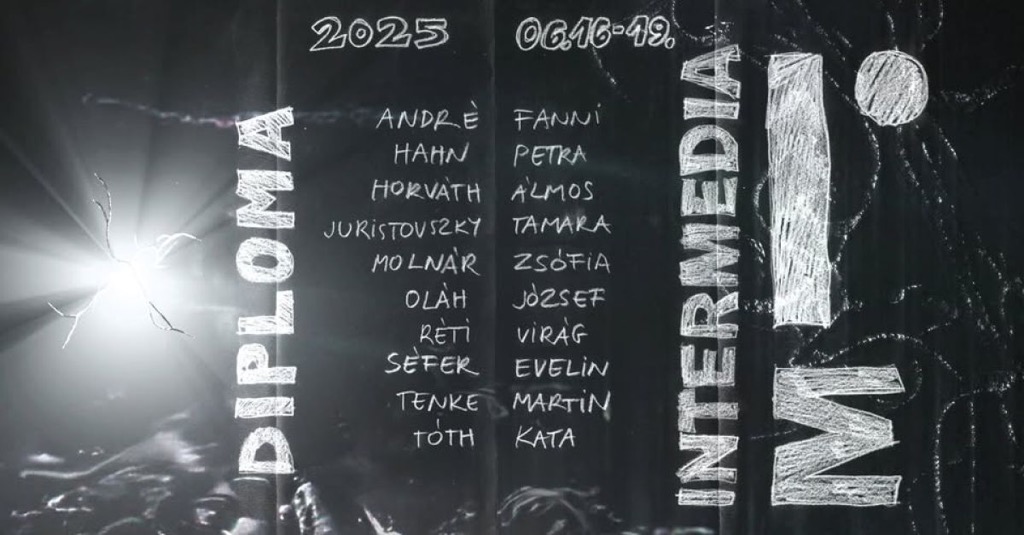 2025 06.16-19.
DIPLOMA
ANDRÈ FANNI
HAHN PETRA
HORVÀTH ÀLMOS
JURISTOVSZKY TAMARA
MOLNÀR ZSÓFIA
OLÀH JÓZSEF
RÈTI VIRÀG
SÈFER EVELIN
TENKE MARTIN
TÓTH KATA
INTERMEDIA
iM